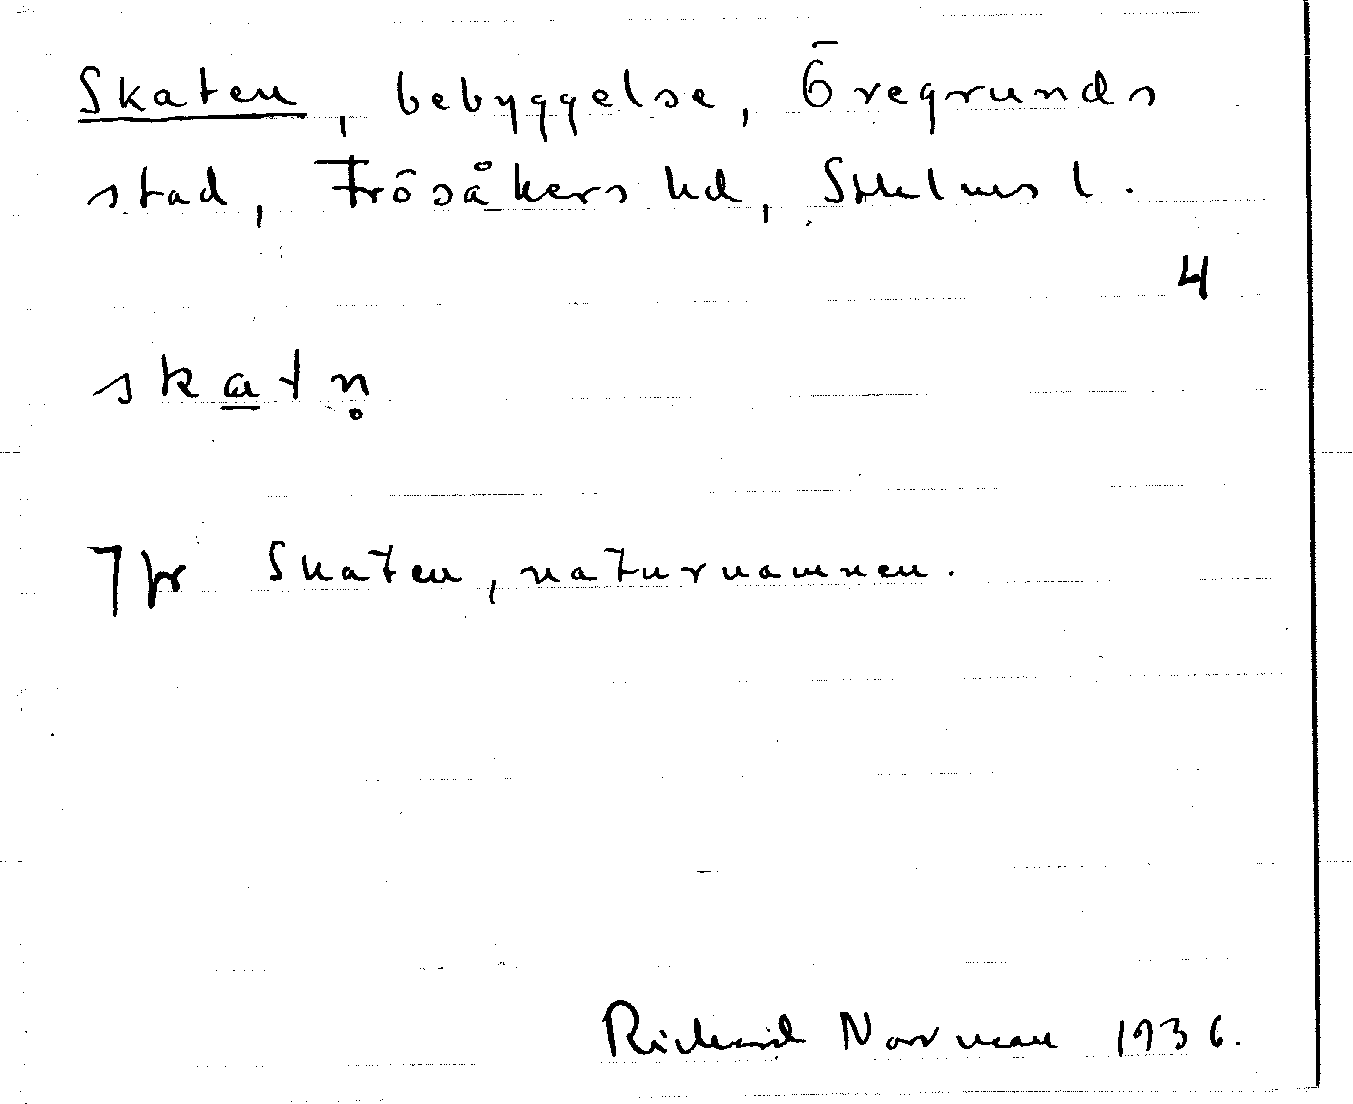 Skaten, bebyggelse, Öregrunds
stad, Frösåkers hd, Sthlms l.
4
skatn̥
Jfr Skaten, naturnamnen.
Rickard Norrman 1936.